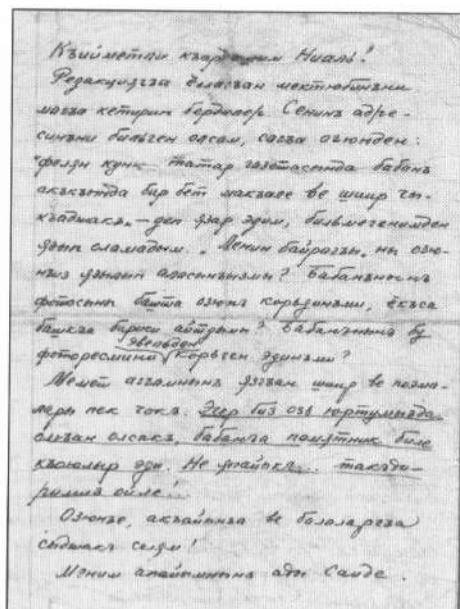 Къыйметли къардашим Ниаль!
Редакциягъа ёллагъан мектюбинъни
магъа кетирип бердилер. Сенинъ адре-
синъни бильген олсам, сагъа огюнден:
"фелян кунь татар газетасында бабанъ
акъкъында бир бет макъале ве шиир чы-
къаджакъ" — деп язар эдим, бильмегенимден
язып оламадым. "Меним байрагъы"ны озю-
нъиз язылып аласынъызмы? Бабанънынъ
фотосыны башта озюнъ корьдинъми, ёкъса
башкъа бириси айттымы? Бабанънынъ бу
фоторесмини эвельден корьген эдинъми?
Мемет агъамнынъ язгъан шиир ве поэма-
лары пек чокъ. Эгер биз озь юртумызда
олгъан олсакъ, бабанъа памятник биле
къоюлыр эди. Не япайыкъ... такъди-
римиз ойле!..
Озюнъе, акъайынъа ве балаларгъа
сыджакъ селям!
Меним апайымнынъ ады Саиде.